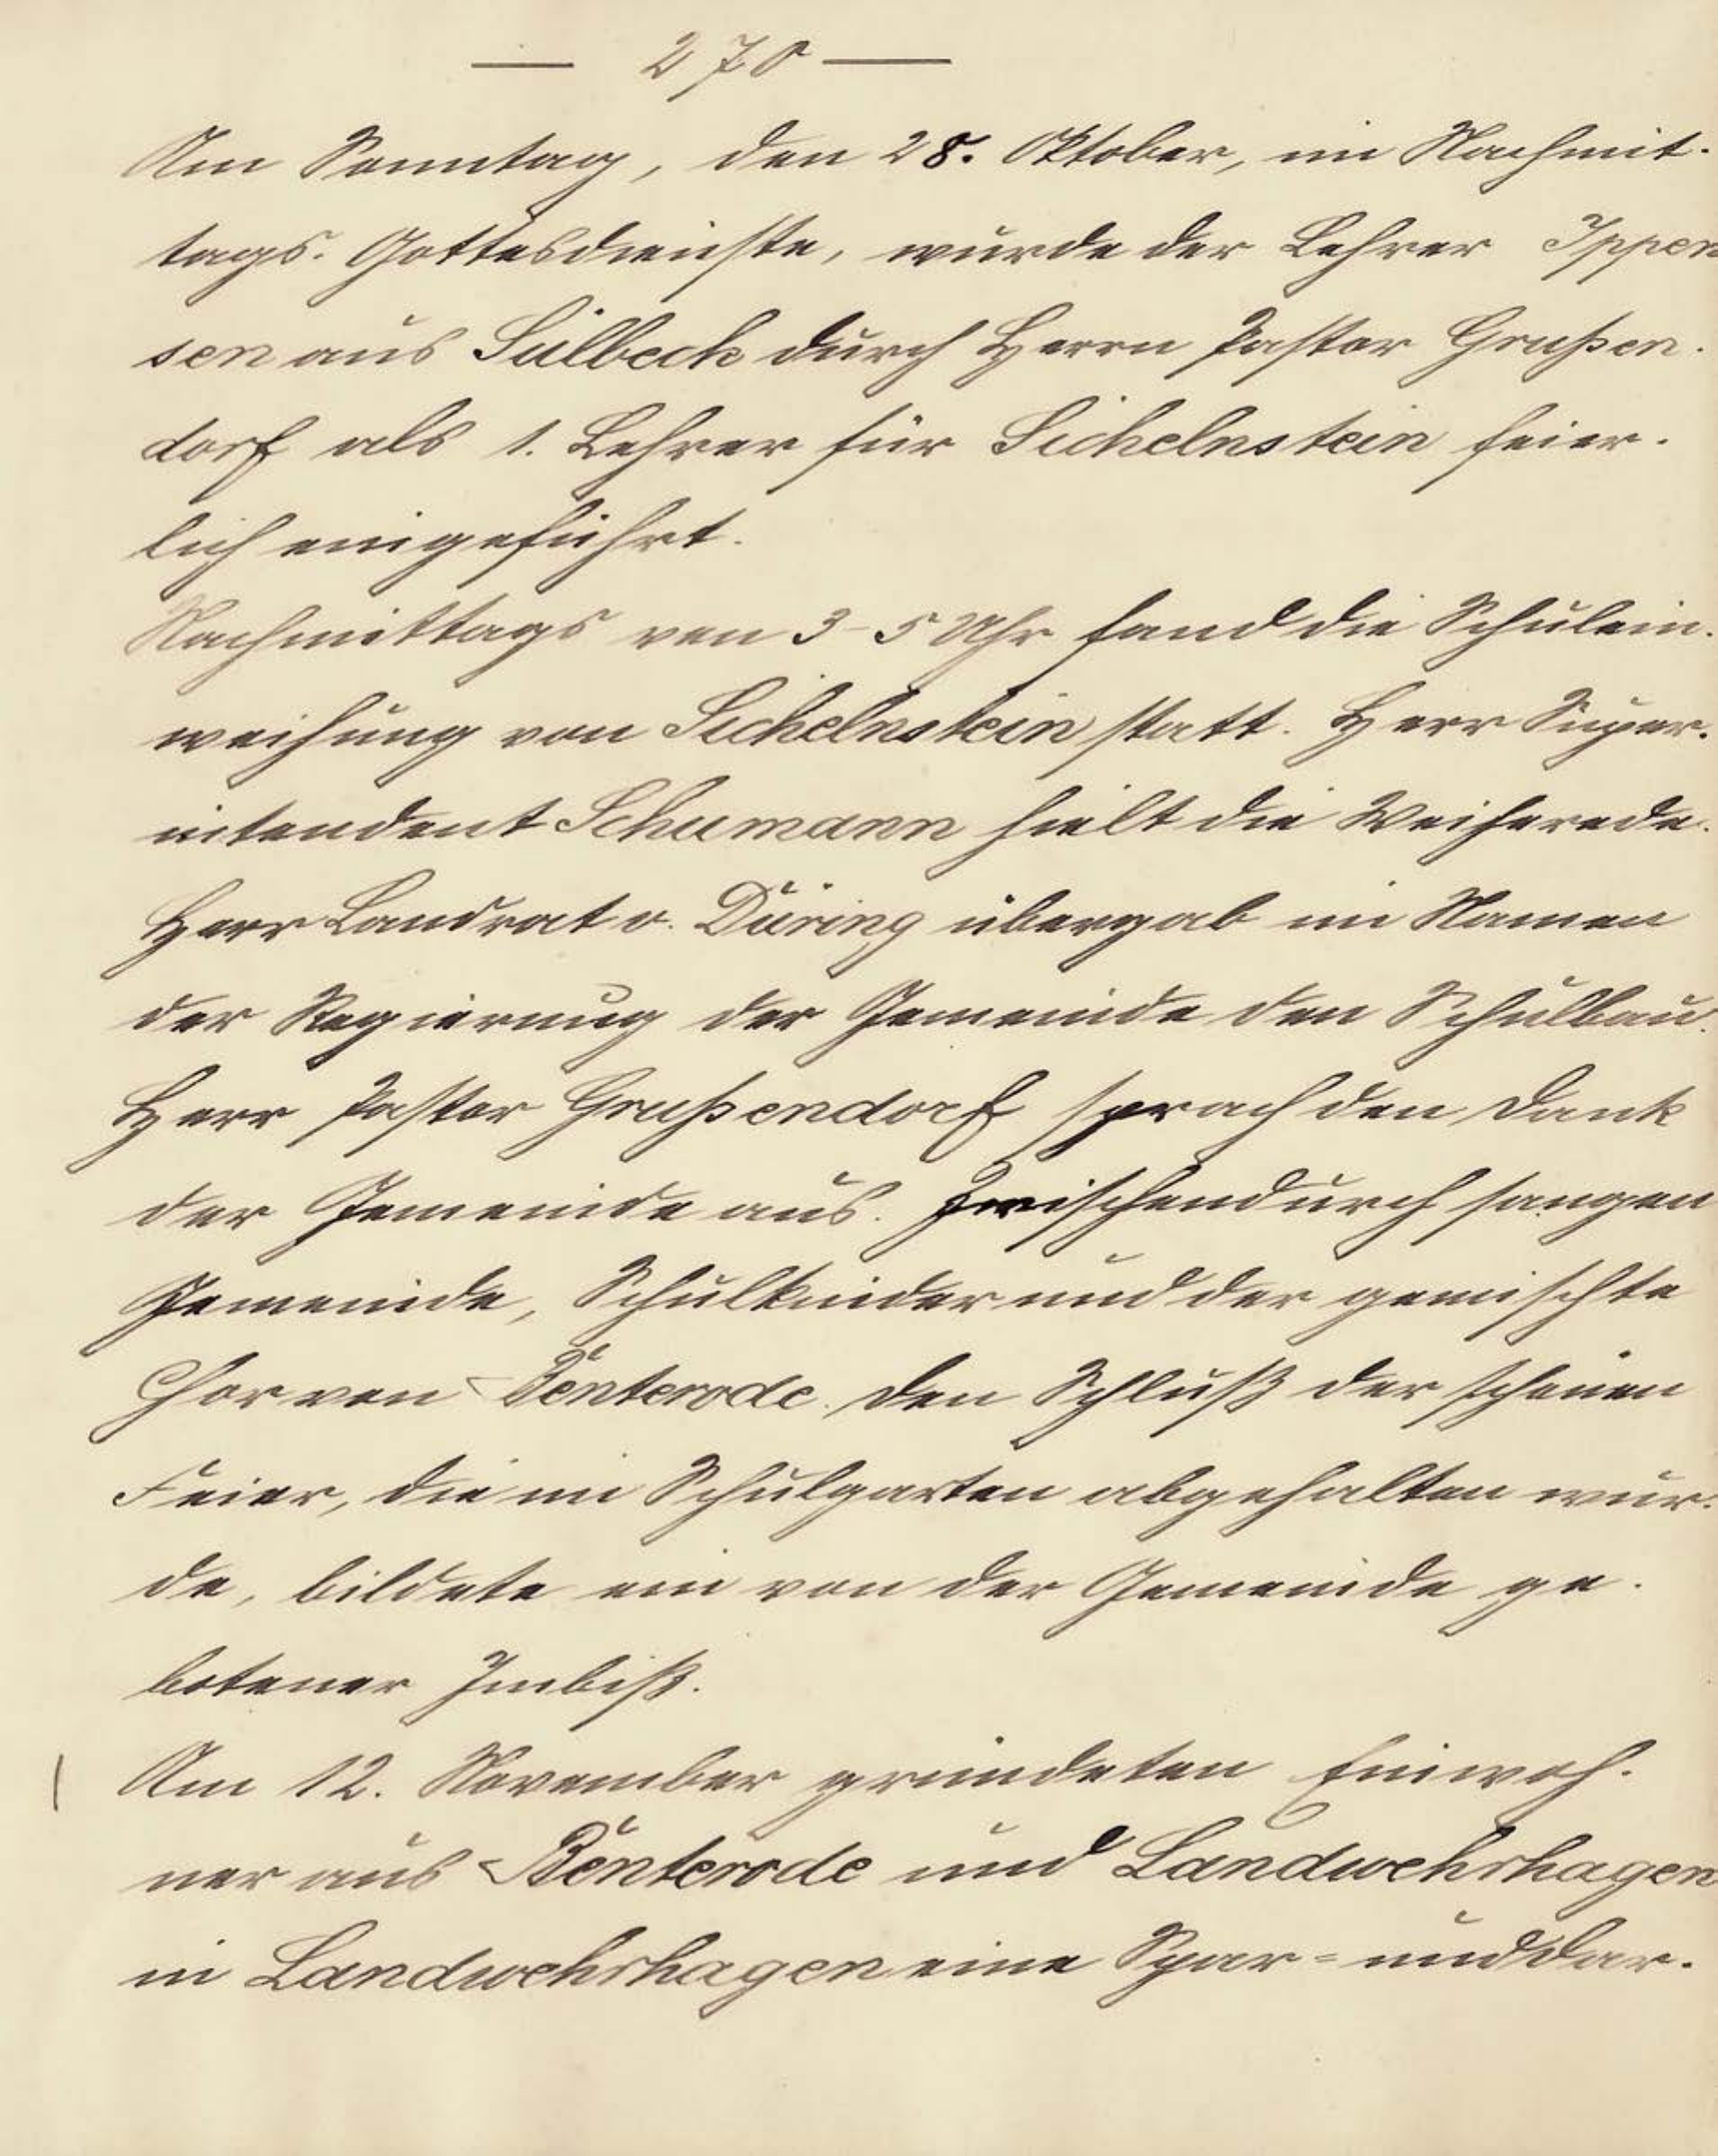 — 270 —
Am Sonntag, den 28. Oktober, im Nachmit-
tags-Gottesdienste, wurde der Lehrer Ippen
sen aus Sülbeck durch Herrn Pastor Grußen-
dorf als 1. Lehrer für Sichelnstein feier-
lich eingeführt.
Nachmittags von 3-5 Uhr fand die Schulein-
weihung von Sichelnstein statt. Herr Super-
intendent Schumann hielt die Weiherede.
Herr Landrat v. Düring übergab im Namen
der Regierung der Gemeinde den Schulbau.
Herr Pastor Grußendorf sprach den Dank
der Gemeinde aus. Zwischendurch sangen
Gemeinde, Schulkinder und der gemischte
Chor von Benterode. Den Schluß der schönen
Feier, die im Schulgarten abgehalten wur-
de, bildete ein von der Gemeinde ge-
botener Imbiß.
Am 12. November gründeten Einwoh-
ner aus Benterode und Landwehrhagen
in Landwehrhagen eine Spar- und Dar-